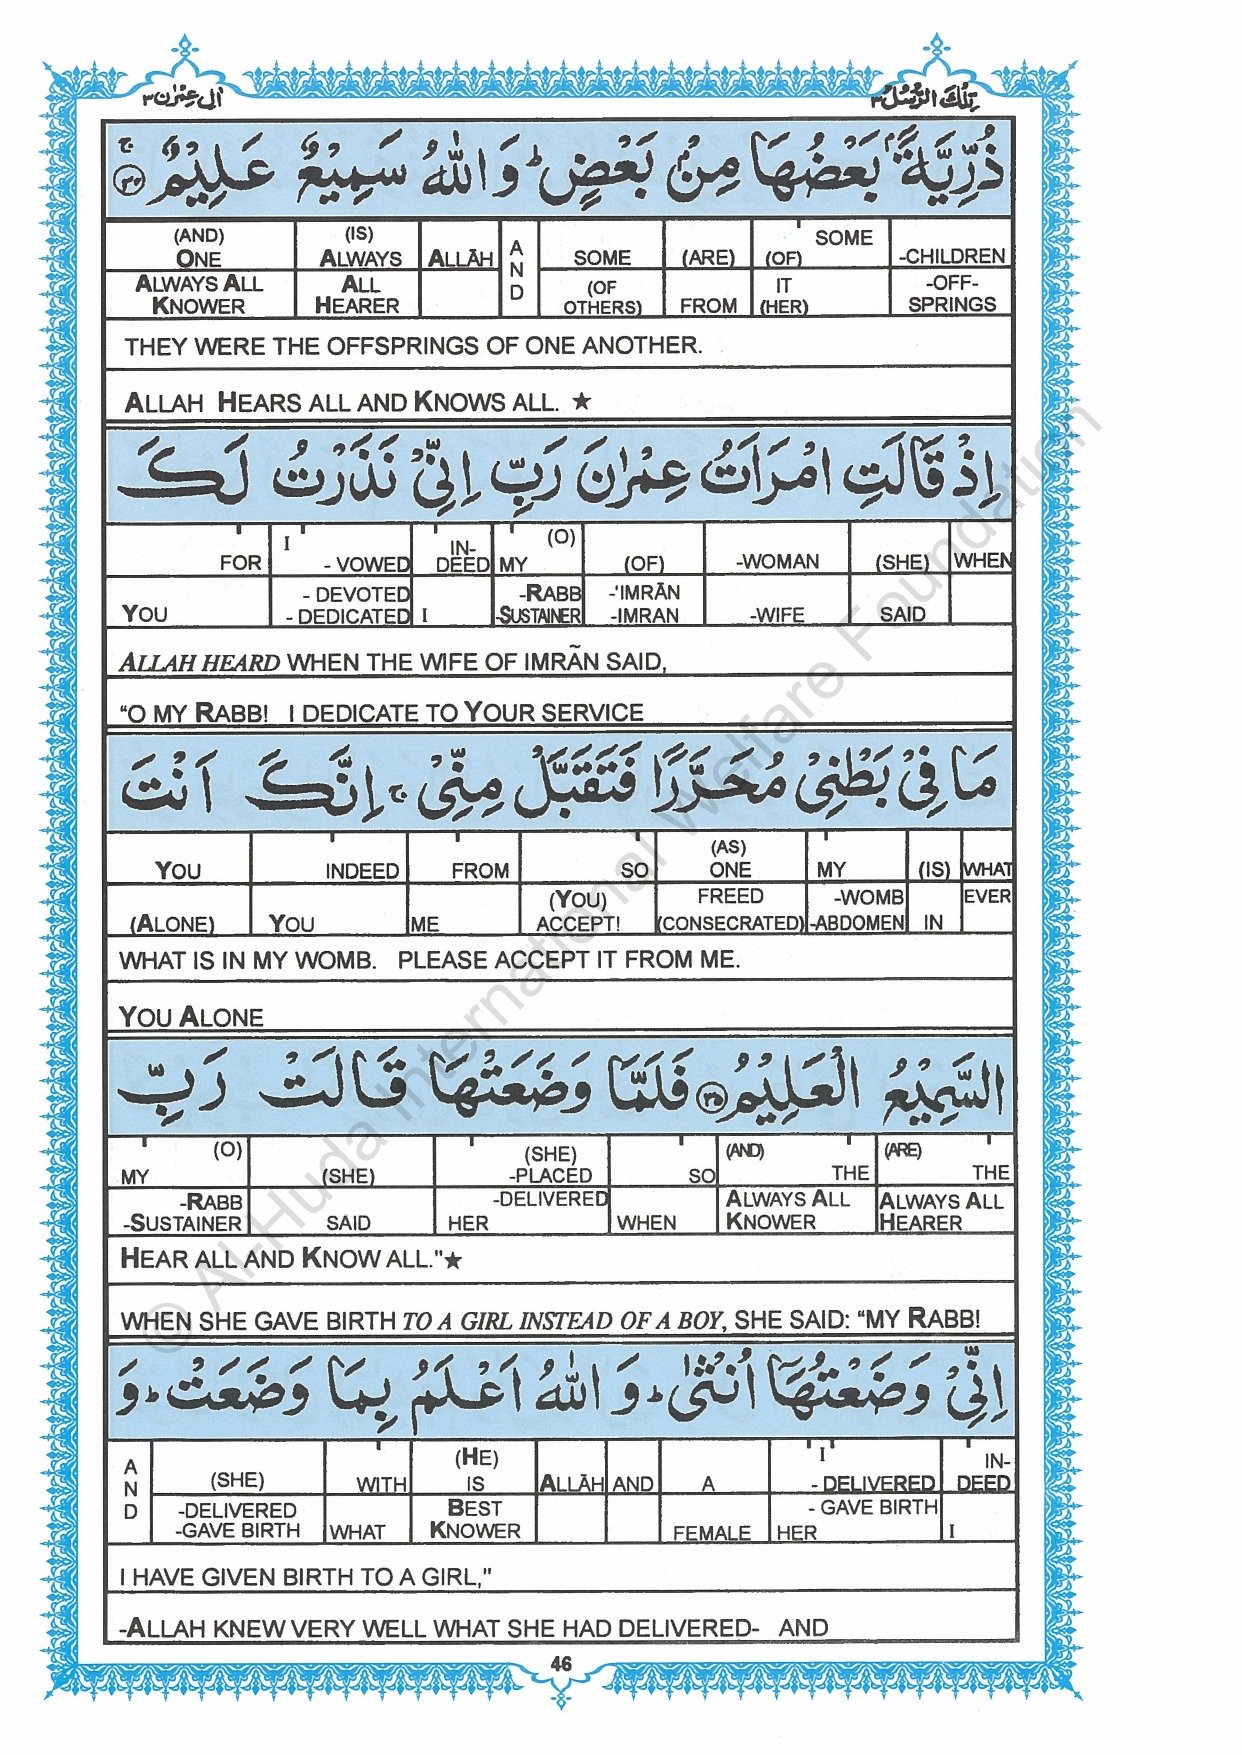 تِلْكَ الرُّسُلُ ٣
اٰلِ عِمْرٰن ٣
ذُرِّيَّةًۢ بَعْضُهَا مِنْۢ بَعْضٍ ؕ وَ اللّٰهُ سَمِيْعٌ عَلِيْمٌ ۚ ﴿٣٤﴾
(AND) (IS) SOME
ONE ALWAYS ALLĀH AND SOME (ARE) (OF) -CHILDREN
ALWAYS ALL ALL (OF IT -OFF-
KNOWER HEARER OTHERS) FROM (HER) SPRINGS
THEY WERE THE OFFSPRINGS OF ONE ANOTHER.
ALLAH HEARS ALL AND KNOWS ALL. ★
اِذْ قَالَتِ امْرَاَتُ عِمْرٰنَ رَبِّ اِنِّيْ نَذَرْتُ لَكَ
I IN- (O)
FOR - VOWED DEED MY (OF) -WOMAN (SHE) WHEN
- DEVOTED -RABB -'IMRĀN
YOU - DEDICATED I -SUSTAINER -IMRAN -WIFE SAID
ALLAH HEARD WHEN THE WIFE OF IMRĀN SAID,
“O MY RABB! I DEDICATE TO YOUR SERVICE
مَا فِيْ بَطْنِيْ مُحَرَّرًا فَتَقَبَّلْ مِنِّيْ ۚ اِنَّكَ اَنْتَ
(AS)
YOU INDEED FROM SO ONE MY (IS) WHAT
(YOU) FREED -WOMB EVER
(ALONE) YOU ME ACCEPT! (CONSECRATED) -ABDOMEN IN
WHAT IS IN MY WOMB. PLEASE ACCEPT IT FROM ME.
YOU ALONE
السَّمِيْعُ الْعَلِيْمُ ﴿٣٥﴾ فَلَمَّا وَضَعَتْهَا قَالَتْ رَبِّ
(O) (SHE) (AND) (ARE)
MY (SHE) -PLACED SO THE THE
-RABB -DELIVERED ALWAYS ALL ALWAYS ALL
-SUSTAINER SAID HER WHEN KNOWER HEARER
HEAR ALL AND KNOW ALL."★
WHEN SHE GAVE BIRTH TO A GIRL INSTEAD OF A BOY, SHE SAID: “MY RABB!
اِنِّيْ وَضَعْتُهَاۤ اُنْثٰى ؕ وَ اللّٰهُ اَعْلَمُ بِمَا وَضَعَتْ ؕ وَ
(HE) I IN-
AND (SHE) WITH IS ALLĀH AND A - DELIVERED DEED
-DELIVERED BEST - GAVE BIRTH
-GAVE BIRTH WHAT KNOWER FEMALE HER I
I HAVE GIVEN BIRTH TO A GIRL,"
-ALLAH KNEW VERY WELL WHAT SHE HAD DELIVERED- AND
46
© Al-Huda International Welfare Foundation